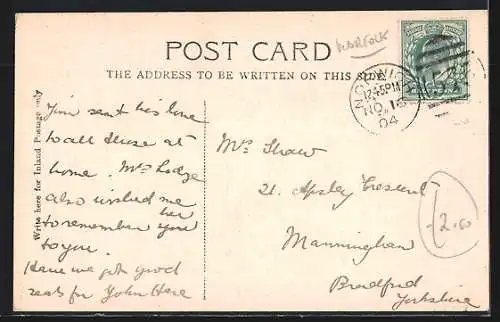 NORFOLK
POST CARD
THE ADDRESS TO BE WRITTEN ON THIS SIDE
NORWICH
12.45PM
NO 15
04
Write here for Inland Postage only
Jim sent his love
to all those at
home. Mrs Lodge
also wished me
to remember her
to you.
Have we got good
seats for John Hare
Mrs Shaw
21. Apsley Crescent
Manningham
Bradford
Yorkshire
2.00